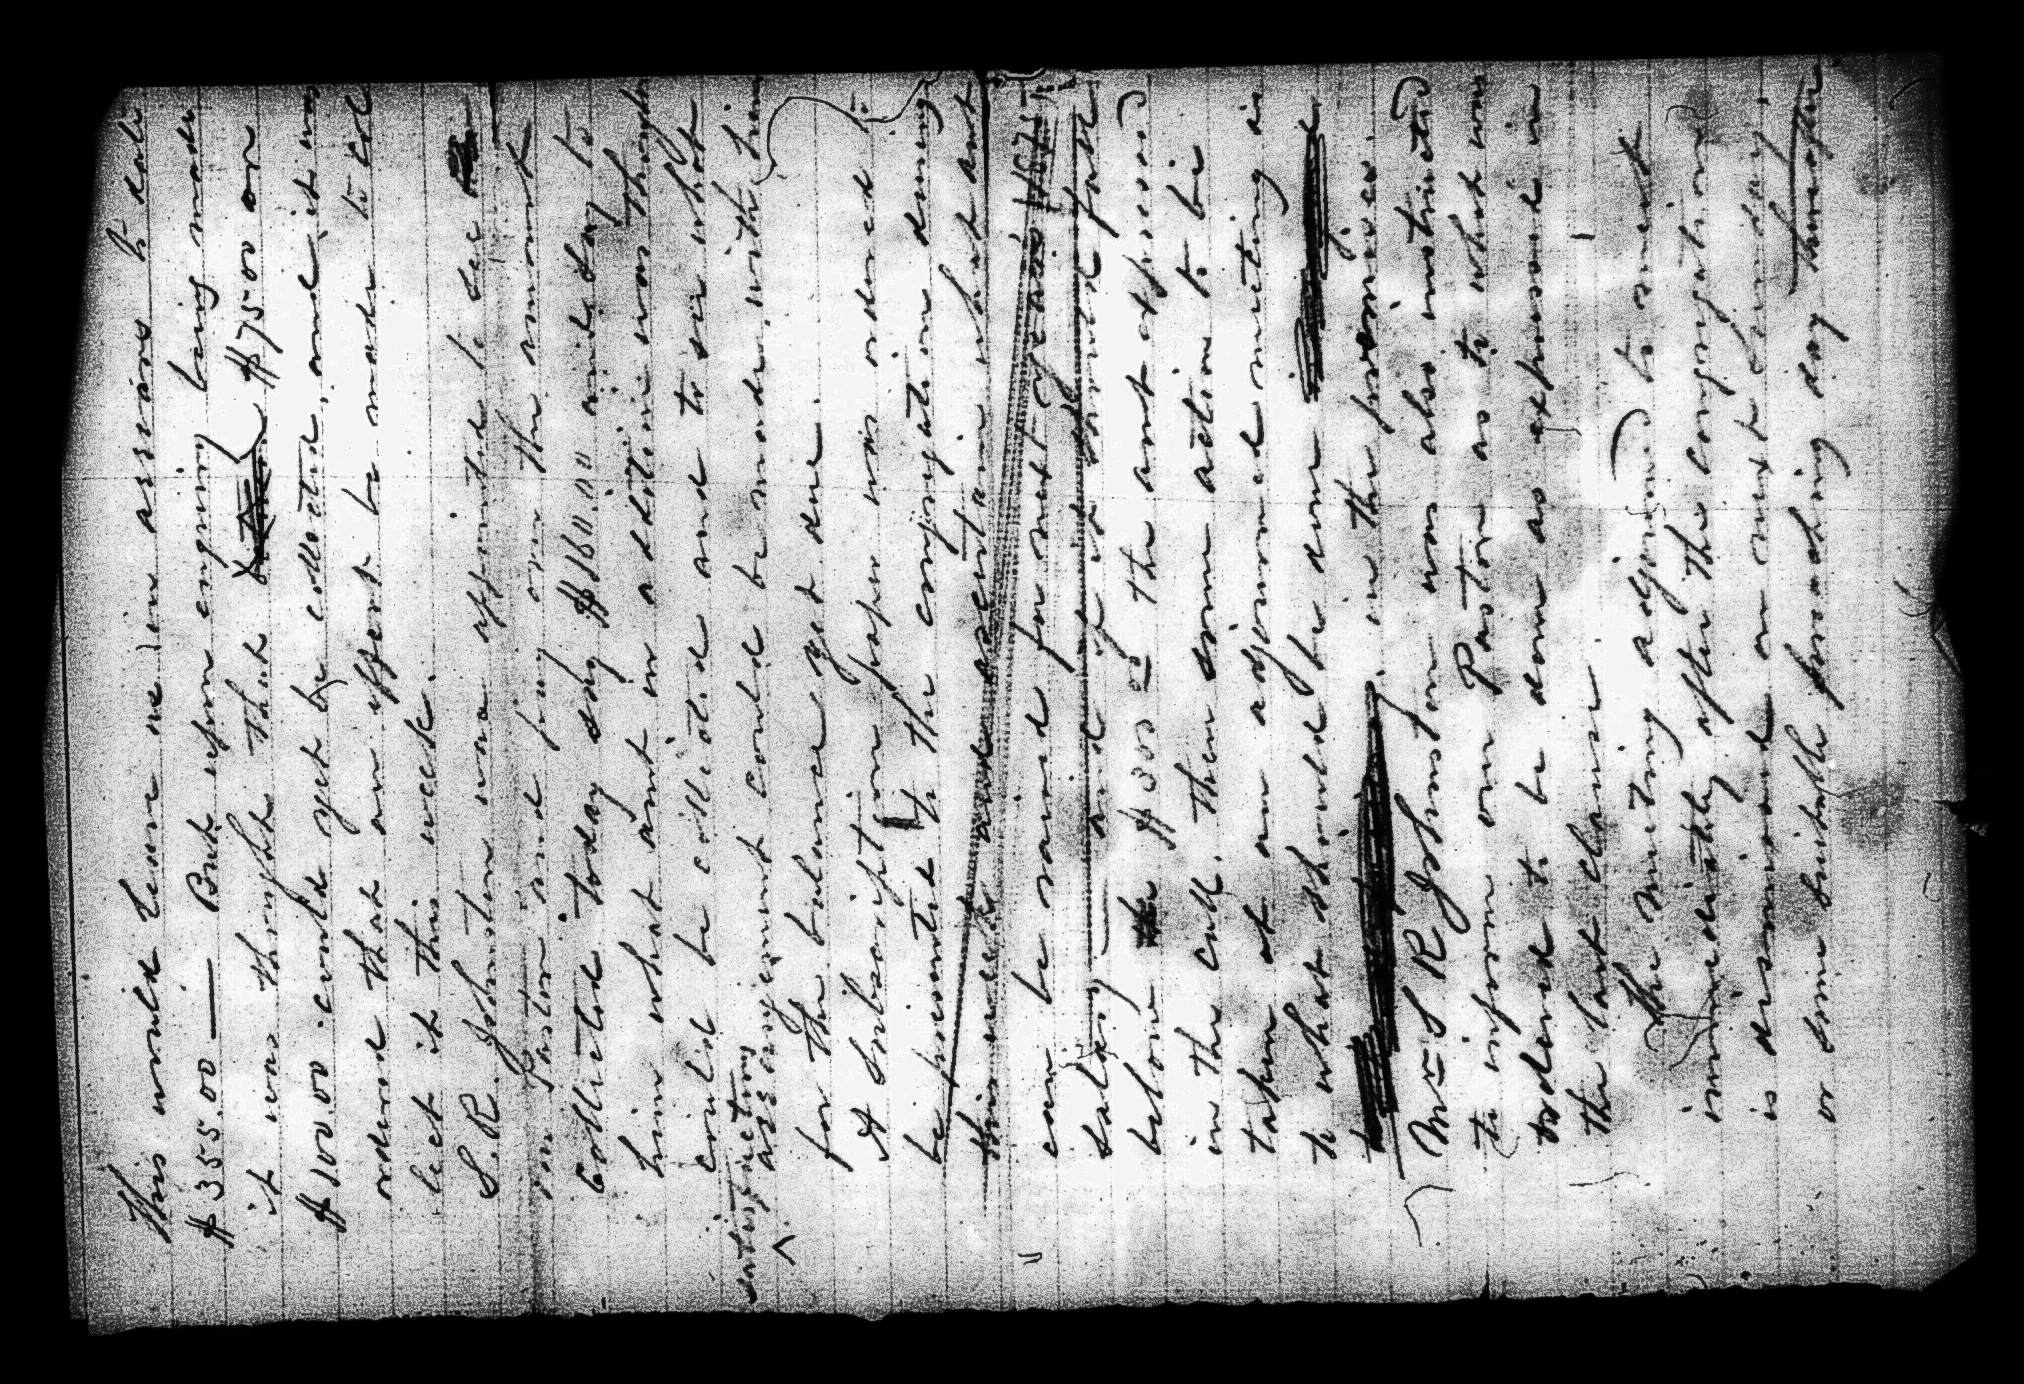 This would leave us in arrears to date
$355.00 — But upon enquiry being made
it was thought that $75.00 or
$100.00 could yet be collected, and it was
ordered that an effort be made to col
lect it this week.
S. R. Johnston was appointed to see
our Pastor and pay over the amount
Collected today say $ and say to
him what amt in addition was thought
could be collected and to see what
satisfactory
assangemnt could be made, with him
for the balance yet due.
A Subscription paper was ordered to
be presented to the congregation during
this week and ascertain what amt
can be raised for next year
salary — and if it cannot
below the $300 the amt expressed
in the call. Then some action to be
taken at an adjourned meeting as
to what should be done
in the premises.
Mr S R Johnston was also instructed
to inform our Pastor as to what was
ordered to be done as expressed in
the last clause
The meeting adjourned to meet
immediately after the congregation
is dismissed on next Sunday
or some suitable preaching day thereafter